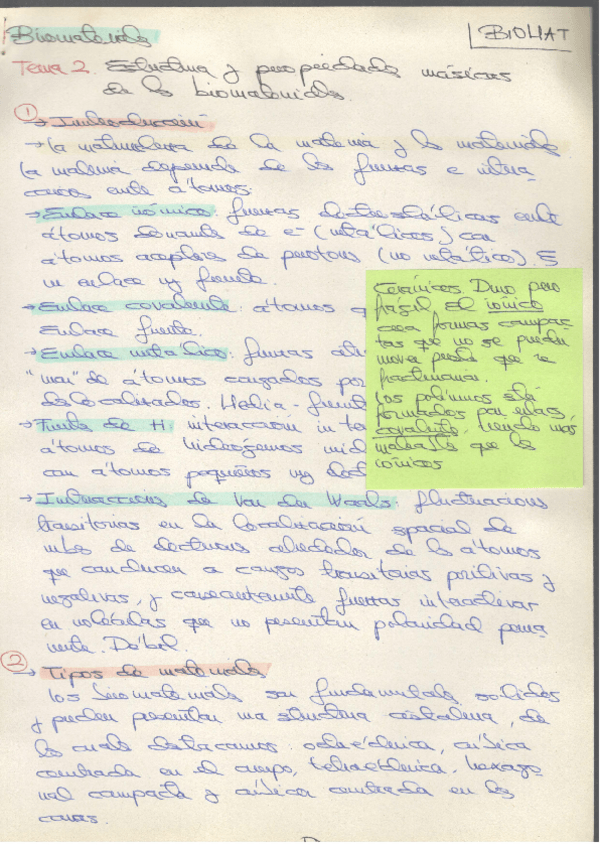 Biomateriales
BIOMAT
Tema 2. Estructura y propiedades másicas
de los biomateriales.
① → Introducción
→ La naturaleza de la materia y los materiales
la materia depende de las fuerzas e intera
cciones entre átomos.
→ Enlace iónico: fuerzas electrostáticas entre
átomos donante de e- (metálicos) con
átomos aceptores de protones (no metálico). Es
un enlace muy fuerte.
→ Enlace covalente: átomos q
Enlace fuerte.
→ Enlace metálico: fuerzas
"mar" de átomos cargados po
deslocalizados. Media-fuerte
→ Puente de H: interacción inte
átomos de hidrógenos unid
con átomos pequeños muy elect
→ Interacciones de Van der Waals: fluctuaciones
transitorias en la localización espacial de
nubes de electrones alrededor de los átomos
que conducen a cargas transitorias positivas y
negativas, y consecuentemente fuerzas interactivas
en moléculas que no presentan polaridad perma
nente. Débil.
② → Tipos de materiales
Los biomateriales son fundamentals solidos
y pueden presentar una estructura cristalina, de
las cuales destacamos octaédrica, cúbica
centrada en el cuerpo, tetraédrica, hexago
nal compacta y cúbica centrada en las
caras.
Cerámicos Duro pero
frágil El iónico
crea formas compac
tas que no se pueden
mover puesto que se
fracturarían.
Los polímeros están
formados por enlaces
covalente, siendo más
maleables que los
iónicos